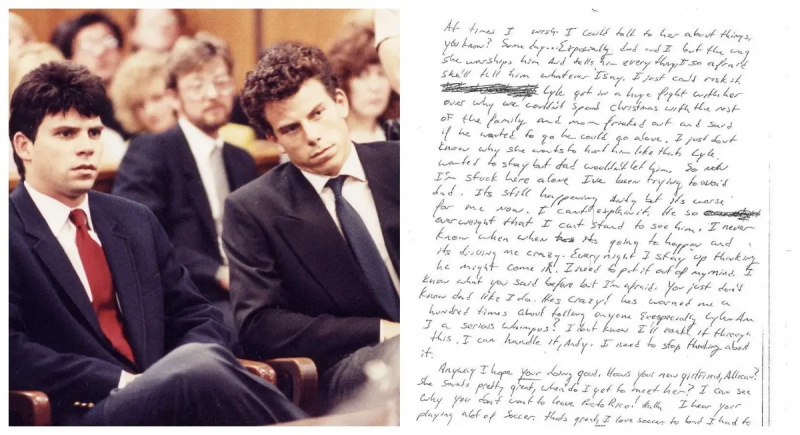 At times I wish I could talk to her about things,
you know? Some day... Expecially dad and I but the way
she worships him and tells him everything, I so afraid
she'll tell him whatever I say. I just can't risk it.
Lyle got in a huge fight with her
over why we couldn't spend Christmas with the rest
of the family and mom freaked out and said
if he wanted to go he could go alone. I just dont
know why she wants to hurt him like that. Lyle
wanted to stay but dad wouldn't let him. So now
I'm stuck here alone I've been trying to avoid
dad. Its still happening Andy but its worse
for me now. I can't explain it. He so
overweight that I cant stand to see him. I never
know when its going to happen and
its driving me crazy. Every night I stay up thinking
he might come in. I need to put it out of my mind. I
know what you said before but I'm afraid. You just don't
know dad like I do. Hes crazy! hes warned me a
hundred times about telling anyone Lyle. Am
I a serious whimpus? I dont know I'll make it through
this. I can handle it, Andy. I need to stop thinking about
it.
Anyway I hope your doing good. Hows your new girlfriend, Allison?
She sounds pretty great, when do I get to meet her? I can see
why you dont want to leave Puerto Rico! I hear your
playing alot of soccer. thats great, I love soccer to but I had to